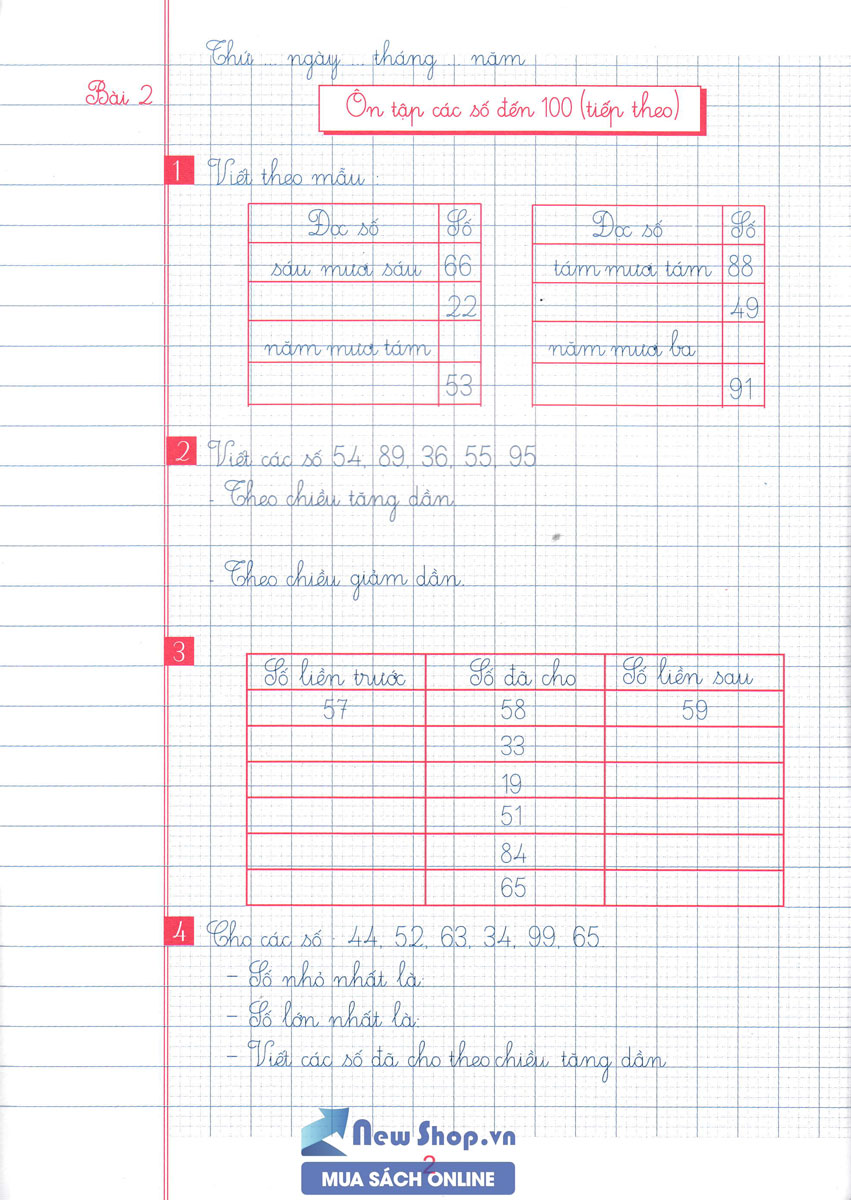 Thứ ... ngày ... tháng ... năm
Bài 2
Ôn tập các số đến 100 (tiếp theo)
1 Viết theo mẫu :
Đọc số Số
sáu mươi sáu 66
22
năm mươi tám
53
Đọc số Số
tám mươi tám 88
49
năm mươi ba
91
2 Viết các số 54, 89, 36, 55, 95
- Theo chiều tăng dần.
- Theo chiều giảm dần.
3
Số liền trước Số đã cho Số liền sau
57 58 59
33
19
51
84
65
4 Cho các số : 44, 52, 63, 34, 99, 65.
- Số nhỏ nhất là:
- Số lớn nhất là:
- Viết các số đã cho theo chiều tăng dần
NewShop.vn
2
MUA SÁCH ONLINE